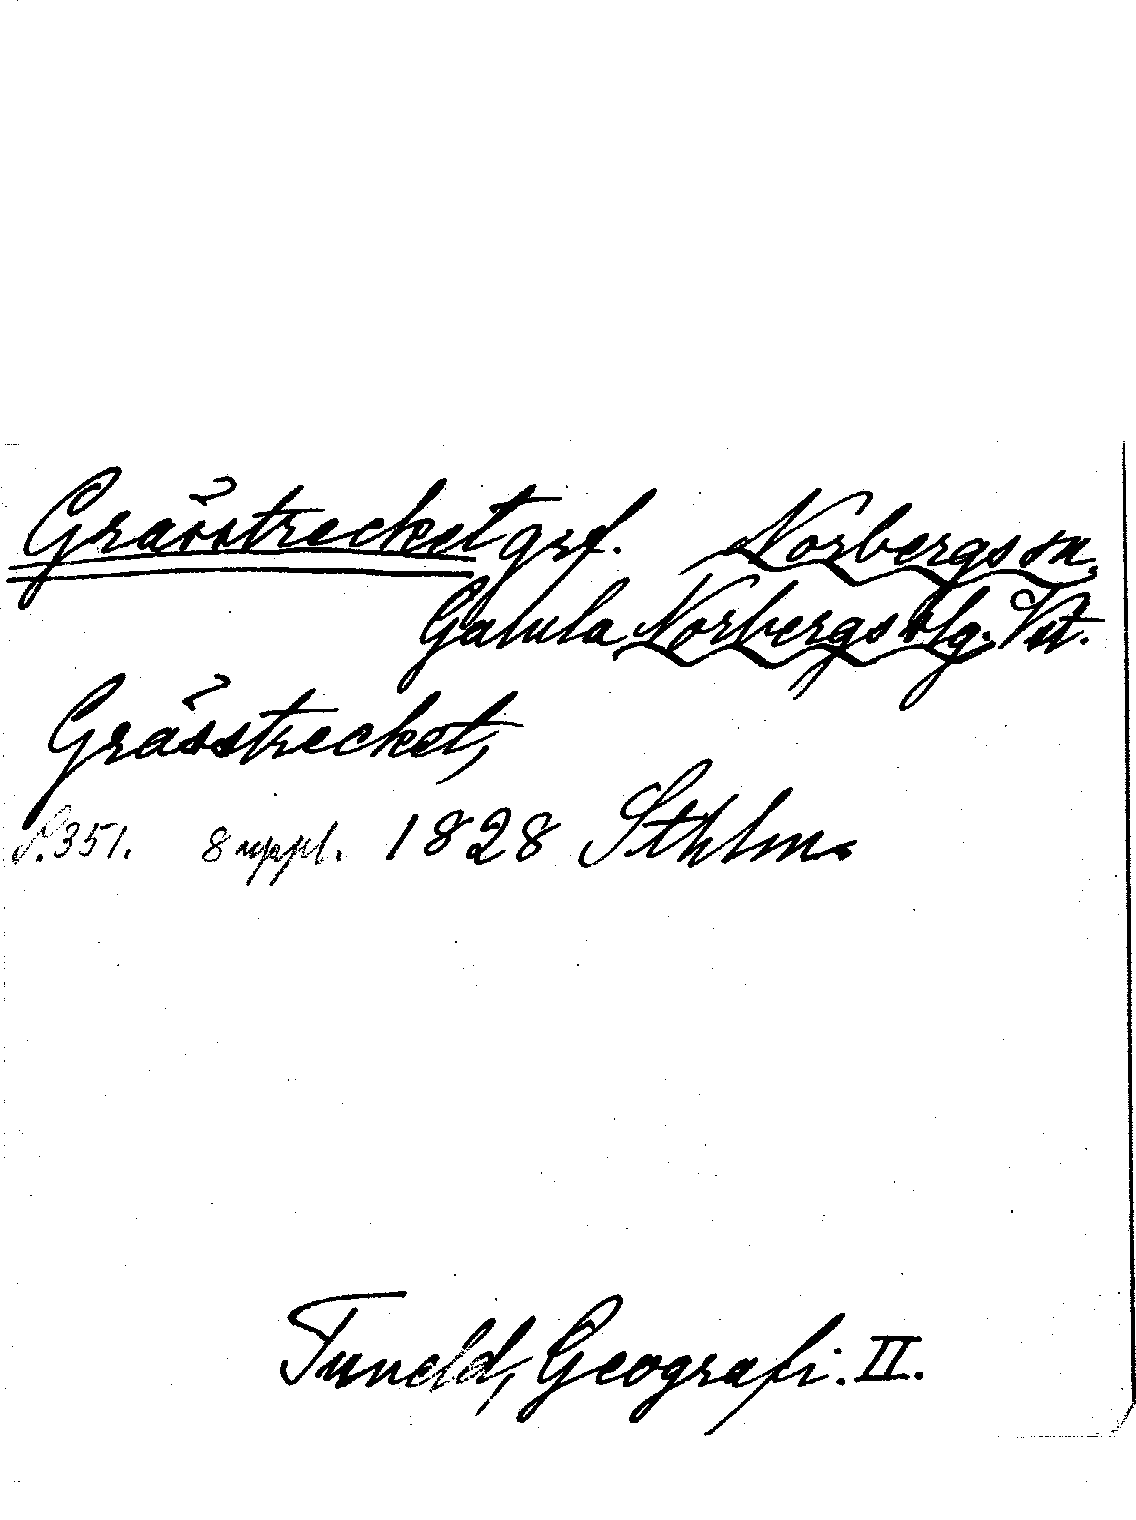 Grässtrecket grf. Norbergs sn.
Gamla Norbergs blg. Vst.
Grässtrecket,
S. 351. 8 uppl. 1828 Sthlm.
Tuneld, Geografi. II.